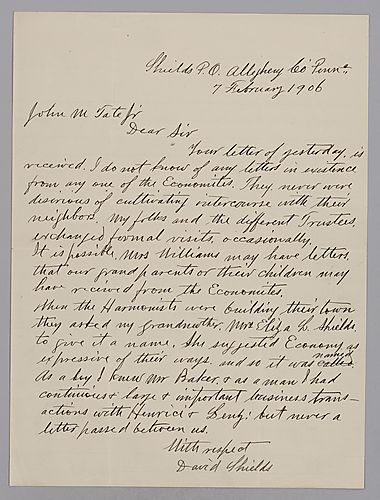 Shields P.O. Allegheny Co Penna.
7 February 1906
John M Tate Jr
Dear Sir
Your letter of yesterday, is
received. I do not know of any letters in existence
from any one of the Economites. They never were
desirous of cultivating intercourse with their
neighbors. My folks and the different Trustees,
exchanged formal visits, occasionally.
It is possible, Mrs Williams may have letters,
that our grand parents or their children may
have recieved from the Economites.
When the Harmonists were building their town
they asked my grandmother, Mrs Eliza L. Shields,
to give it a name. She suggested Economy as
expressive of their ways, and so it was called.
named
As a boy, I knew Mr Baker, & as a man I had
continuous & large & important business trans-
actions with Henrici & Lenz: but never a
letter passed between us.
With respect
David Shields